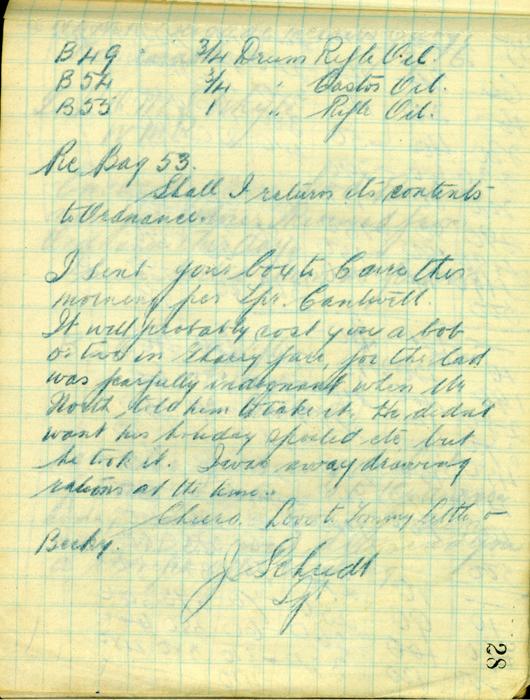 B49 " 3/4 Drum Rifle Oil.
B54 3/4 " Castor Oil.
B55 1 " Rifle Oil.
Re Bag 53.
Shall I return its contents
to Ordnance.
I sent your box to Cairo this
morning per Spr. Cantwell.
It will probably cost you a bob
or two in gharry fare, for the lad
was fearfully indignant when Mr
North told him to take it. He didn't
want his holiday spoiled etc but
he took it. I was away drawing
rations at the time.
Cheero. Love to Tommy Little &
Becky.
J Schudt
Sgt
28